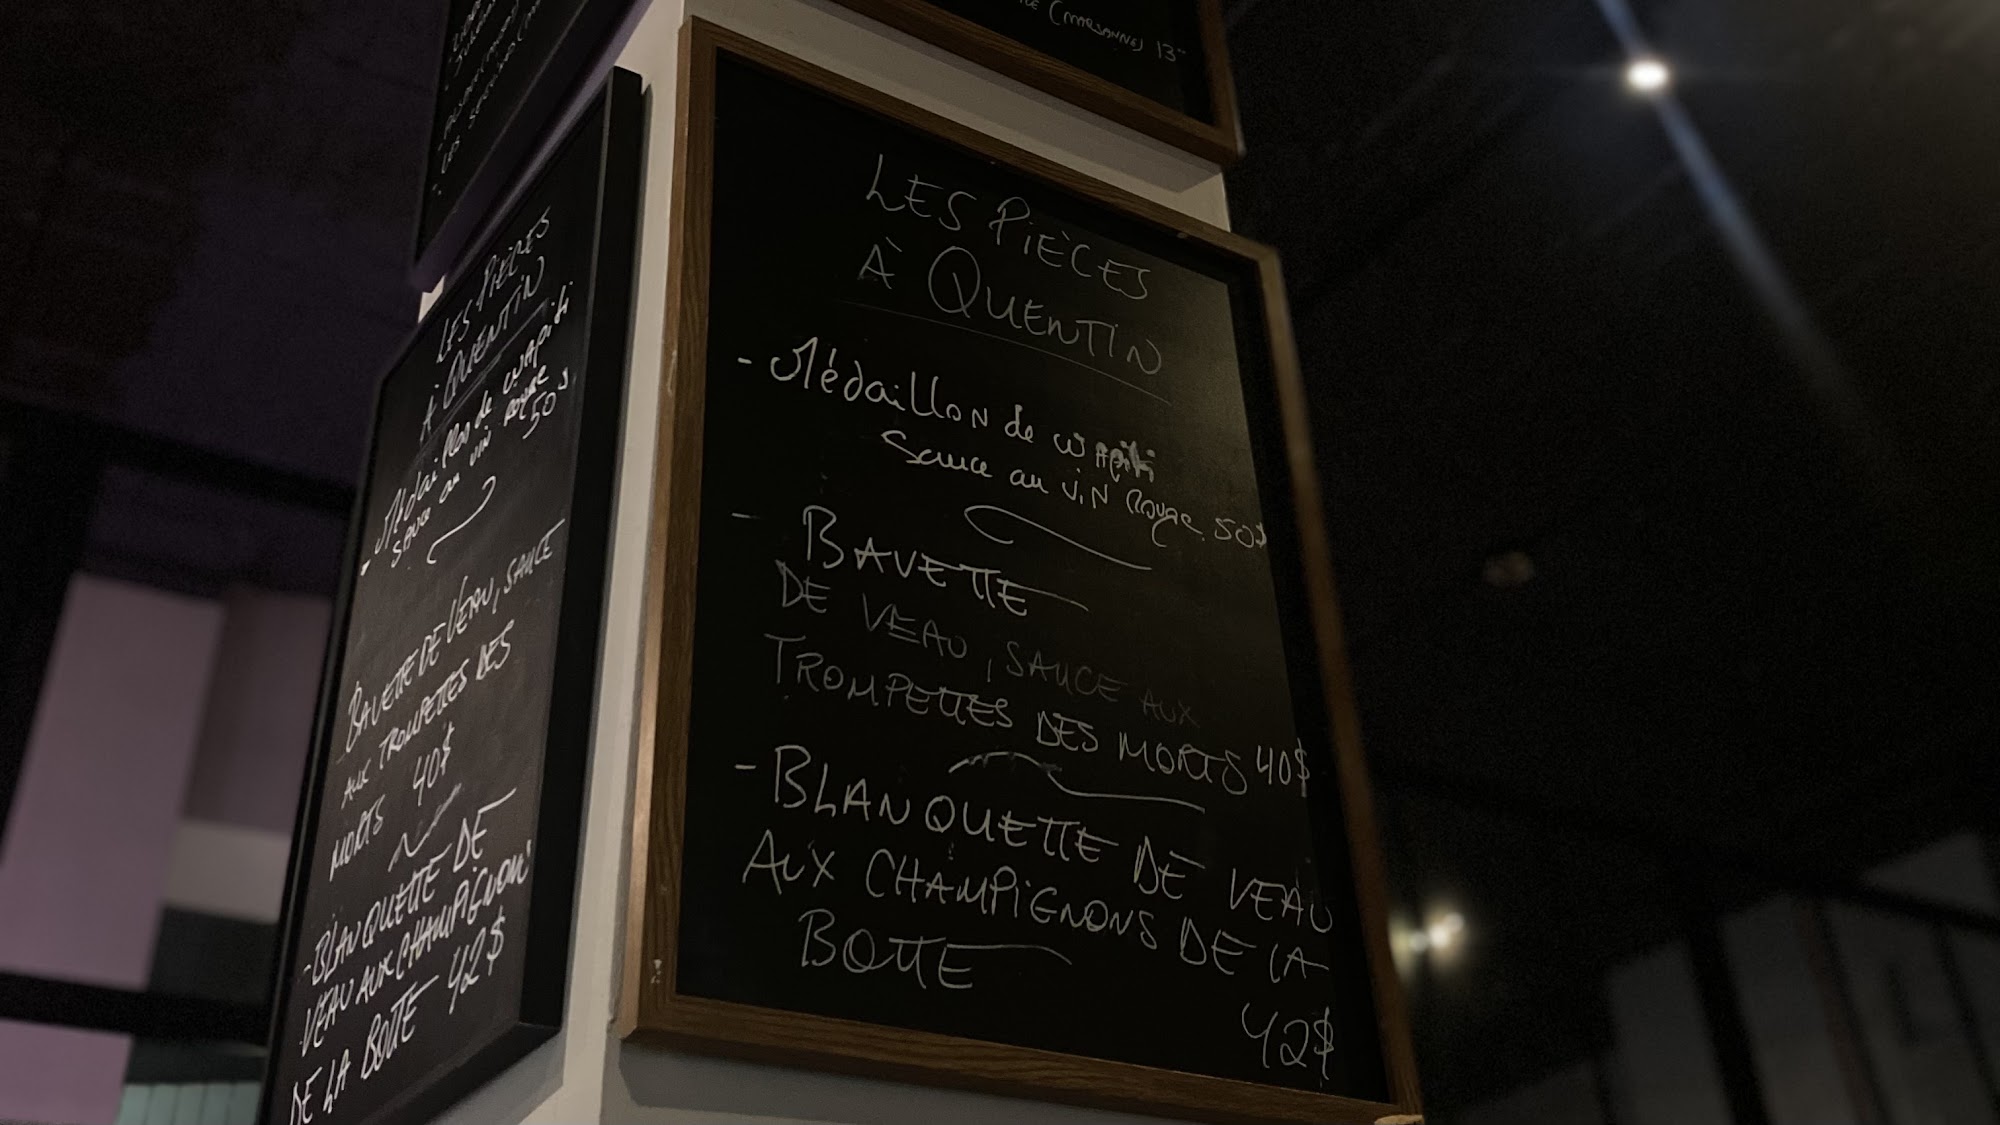 (MARSANNE) 13
LES PIÈCES
À QUENTIN
- Médaillon de wapiti
Sauce au vin Rouge 50$
- BAVETTE
DE VEAU, SAUCE AUX
TROMPETTES DES MORTS 40$
- BLANQUETTE DE VEAU
AUX CHAMPIGNONS DE LA
BOTTE
42$
LES
LES PIÈCES
À QUENTIN
- Médaillon de wapiti
Sauce au vin Rouge
50$
BAVETTE DE VEAU, SAUCE
AUX TROMPETTES DES
MORTS 40$
- BLANQUETTE DE
VEAU AUX CHAMPIGNONS
DE LA BOTTE 42$